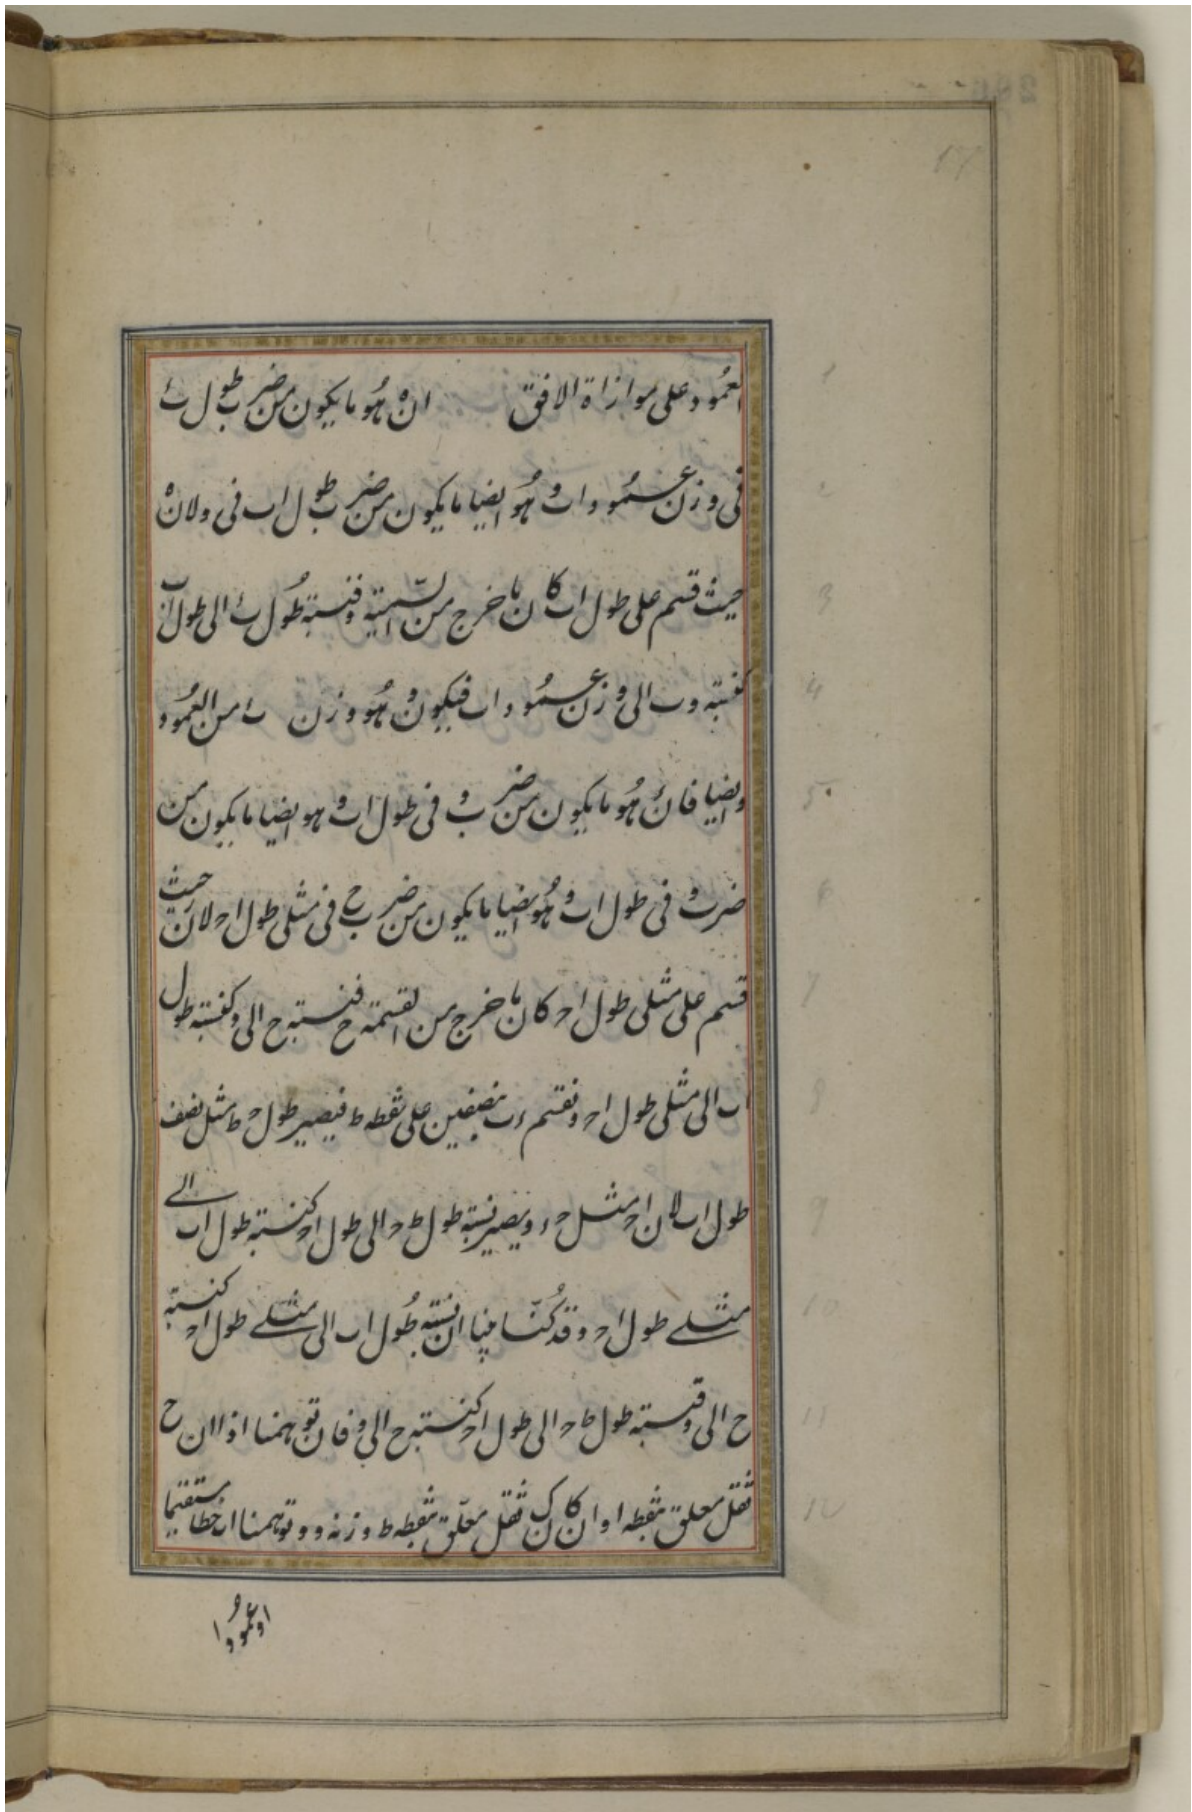 العمود على موازاة الافق ان ه هو ما يكون من ضرب طول
فى وزن عمود اب و هو ايضا ما يكون من ضرب طول اب فى و لان ه
حيث قسم على طول اب كان ما خرج من القسمة و فنسبة طول الى طول اب
كنسبة و الى وزن عمود اب فيكون و هو وزن من العمود
وايضا فان هو ما يكون من ضرب و فى طول اب و هو ايضا ما يكون من
ضرب و فى طول اب و هو ايضا ما يكون من ضرب ح فى مثلى طول اح ولان حيث
قسم على مثلى طول اح كان ما خرج من القسمة ح فنسبة ح الى و كنسبة طول
اب الى مثلى طول اح ونقسم ءب بنصفين على نقطه ط فيصير طول ح ط مثل نصف
طول اب لان اح مثل حء ويصير نسبة طول ط ح الى طول اح كنسبة طول اب الى
مثلى طول اح وقد كنا بينا ان نسبة طول اب الى مثلى طول اح كنسبة
ح الى و فنسبة طول ط ح الى طول اح كنسبة ح الى و فان توهمنا اذا ان ح
ثقل معلق بنقطه ا وان كان ك ثقل معلق بنقطه ط وزنه و و توهمنا اب خطا مستقيما
او عمودا
17
1
2
3
4
5
6
7
8
9
10
11
12